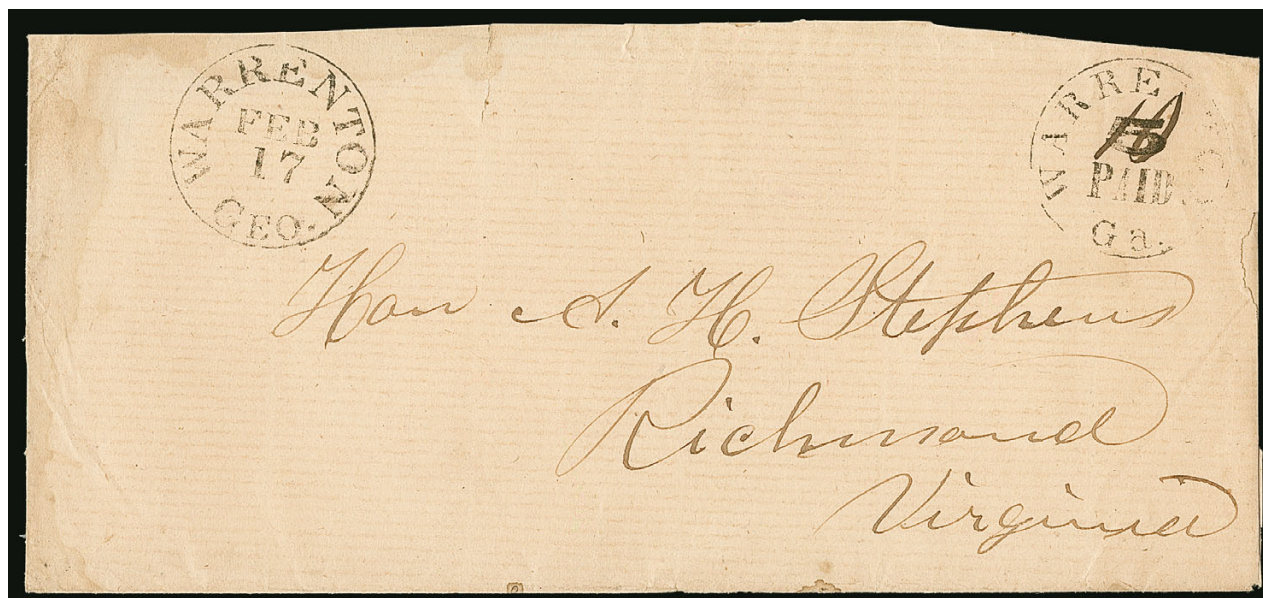 WARRENTON
FEB
17
GEO.
WARRE
5
10
PAID
Ga.
Hon A. H. Stephens
Richmond
Virginia